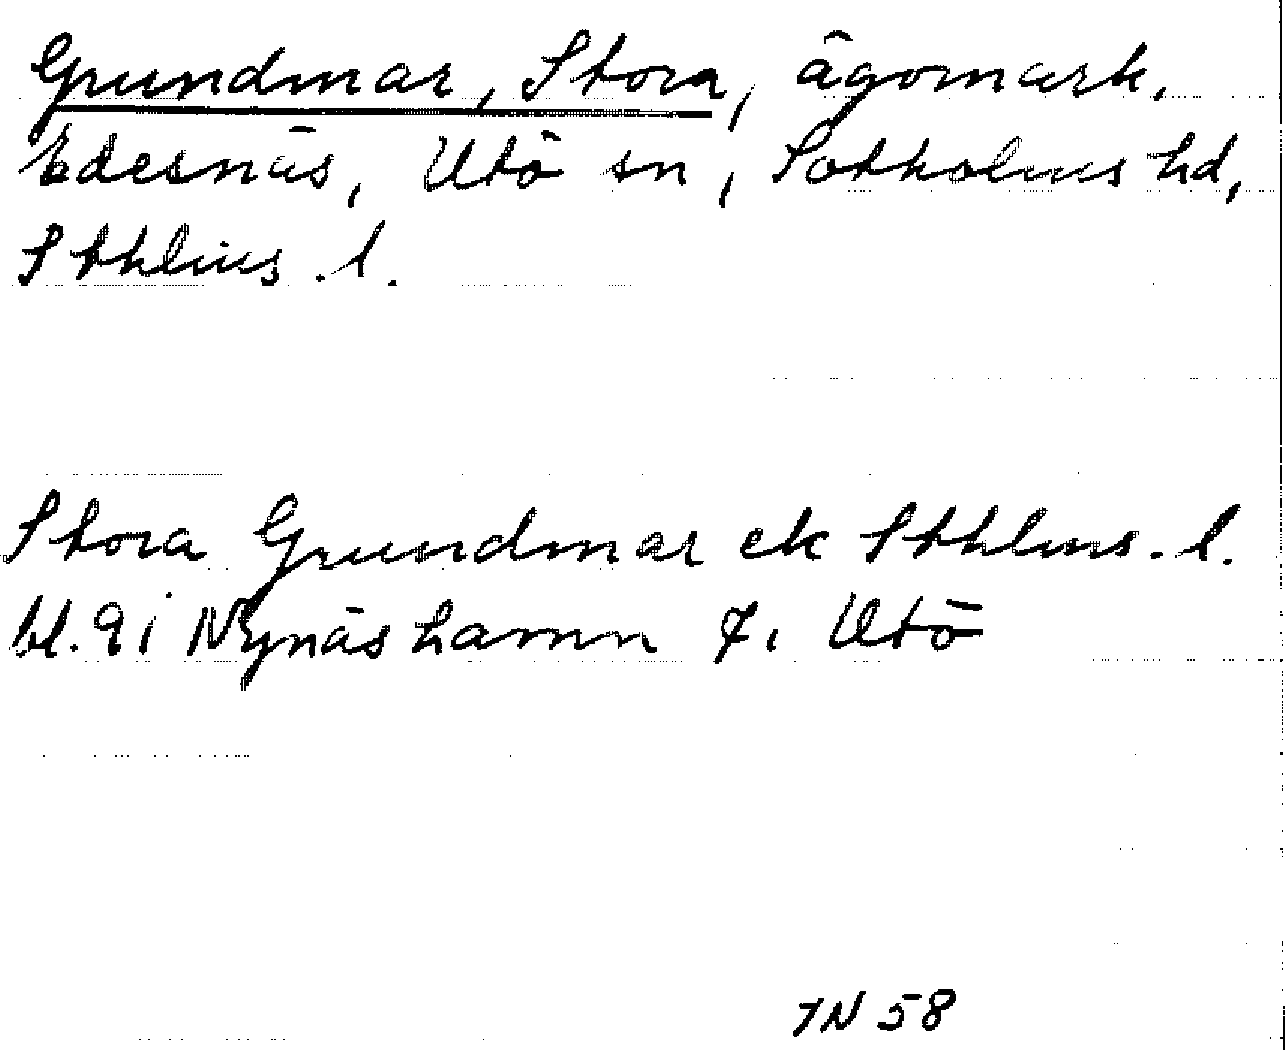 Grundmar, Stora, ägomark.
Edesnäs, Utö sn, Sotholms hd,
Sthlms. l.
Stora Grundmar ek Sthlms. l.
bl. 9 i Nynäshamn 7. Utö
IN 58